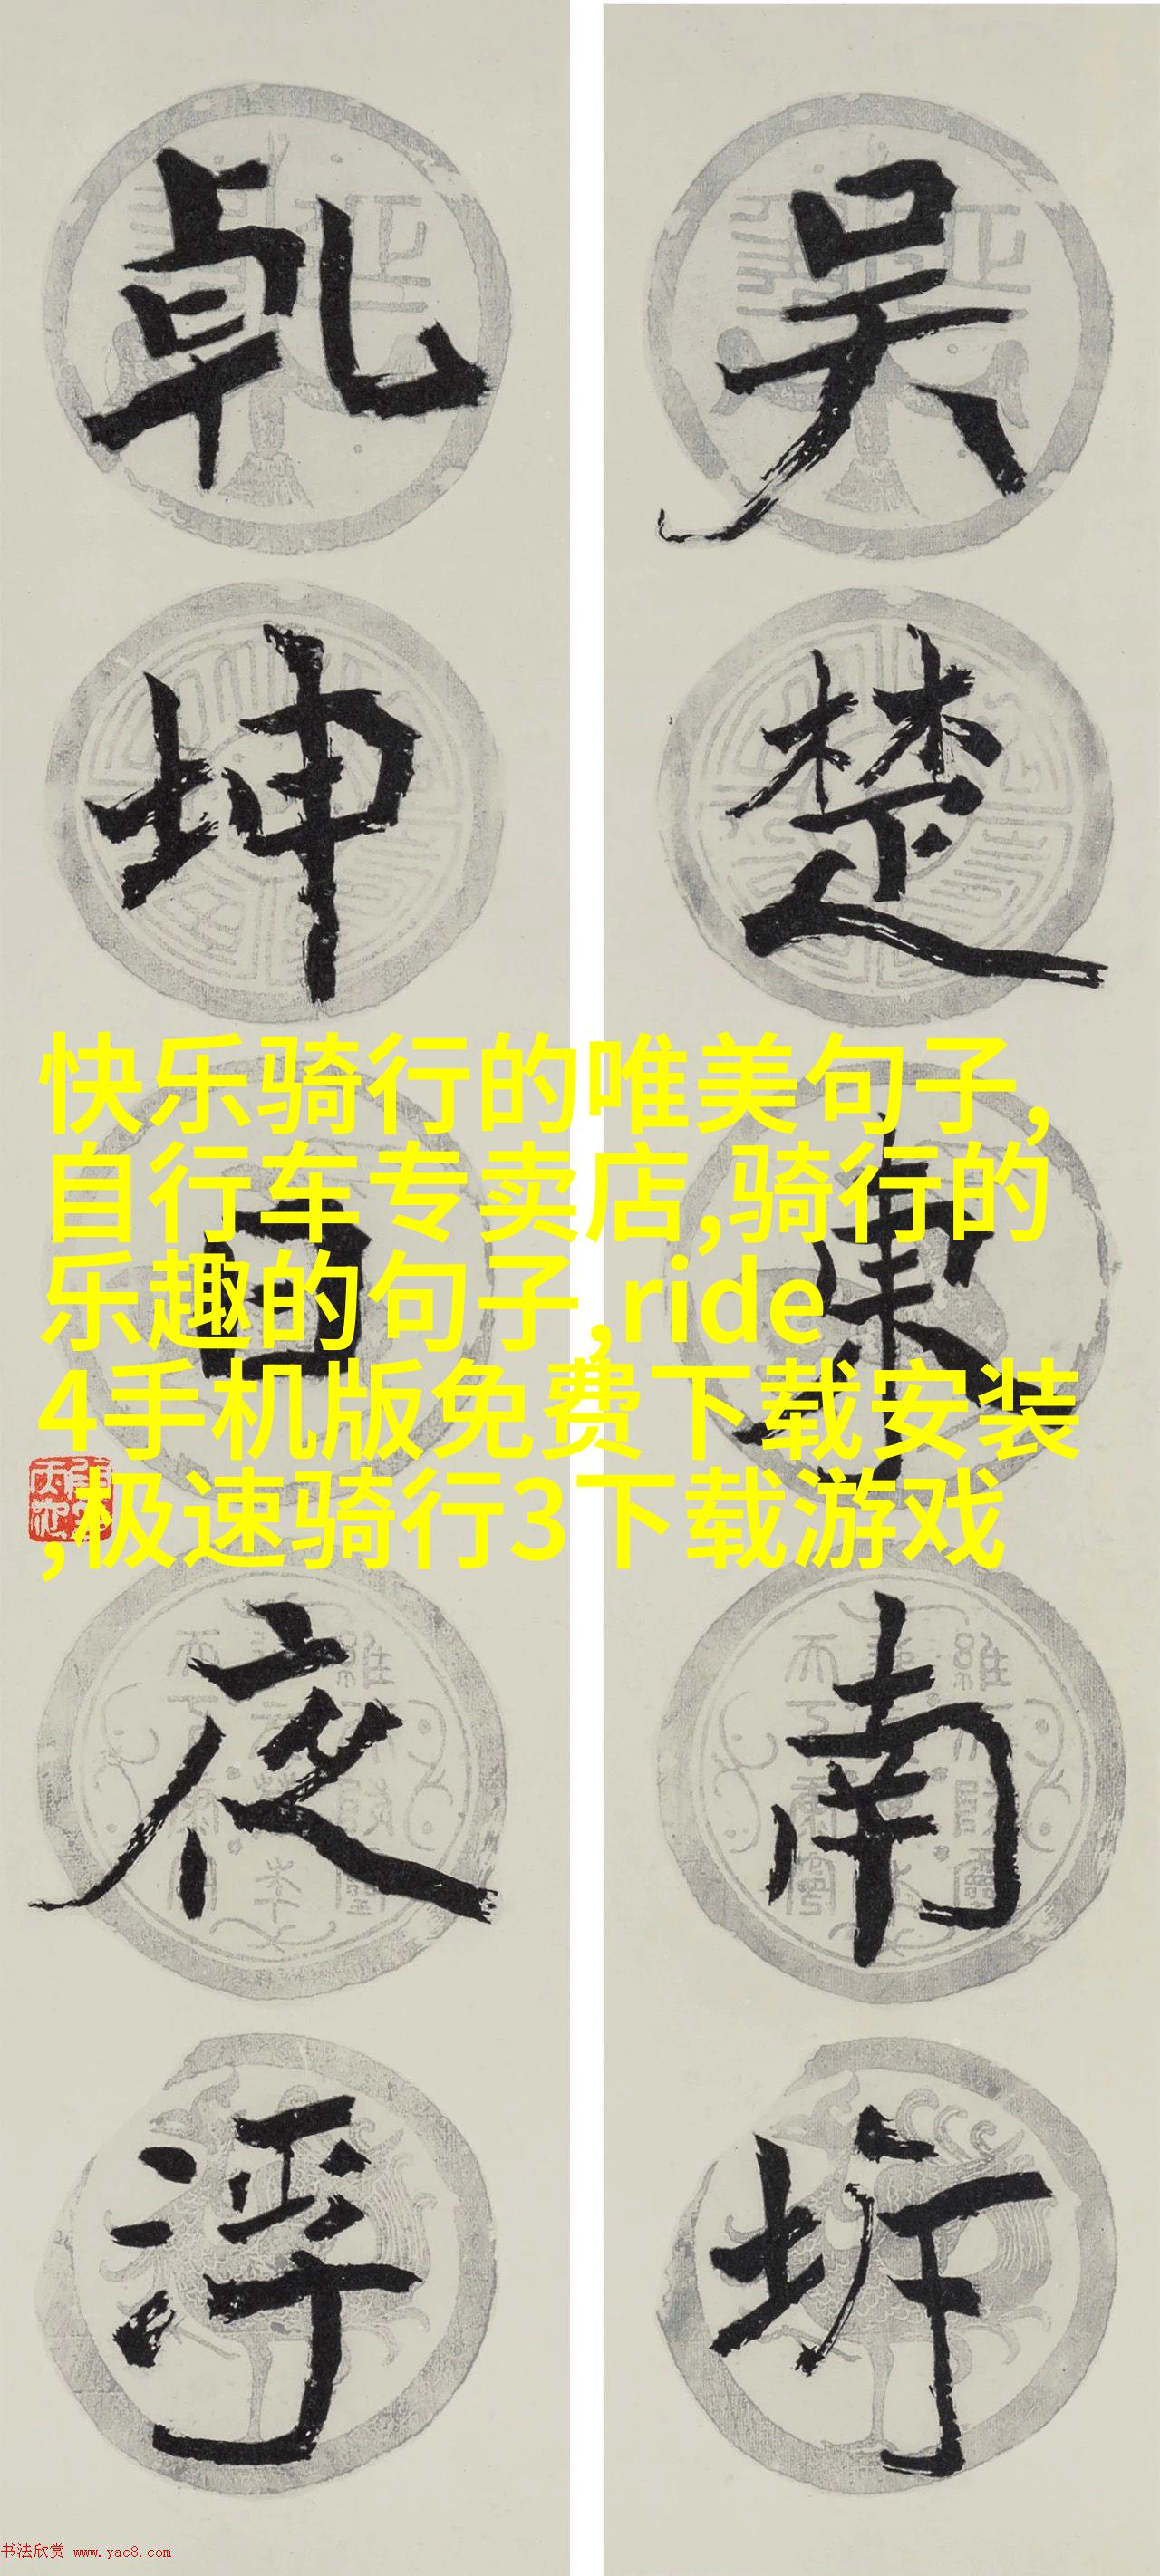 吴楚东南坼
乾坤日夜浮
快乐骑行的唯美句子,
自行车专卖店,骑行的
乐趣的句子,ride
4手机版免费下载安装
,极速骑行3下载游戏
书法欣赏 www.yac8.com